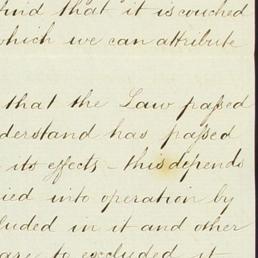 find that it is couched
which we can attribute
that the Law passed
derstand has passed
its effects - this depends
ied into operation by
luded in it and other
are to excluded it